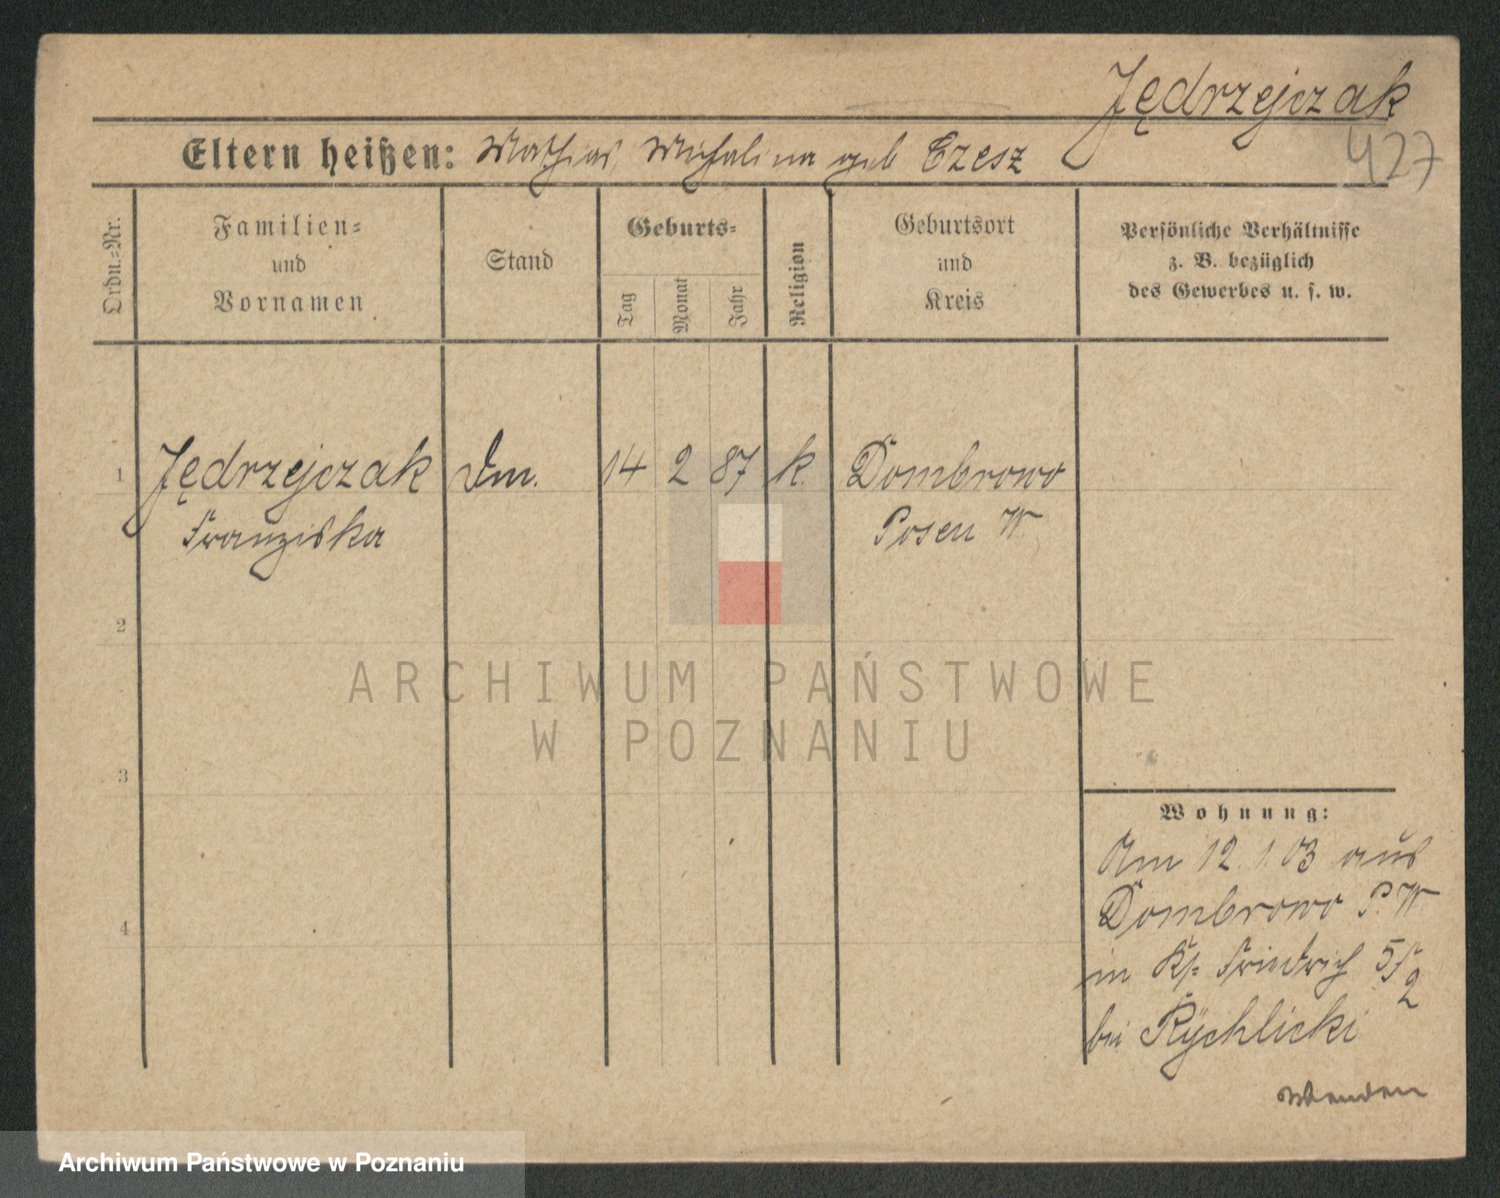 Jędrzejczak
427
Eltern heißen: Mathias, Michalina geb Czesz
Ordn.-Nr.
Familien-
und
Vornamen
Stand
Geburts-
Tag
Monat
Jahr
Religion
Geburtsort
und
Kreis
Persönliche Verhältnisse
z. B. bezüglich
des Gewerbes u. s. w.
1 Jędrzejczak Dm. 14 2 87 k. Dombrowo
Franziska Posen W
2
ARCHIWUM PAŃSTWOWE
W POZNANIU
3
Wohnung:
Am 12.1.03 aus
Dombrowo P. W
4
in Kl. Friedrich 5/2
bei Rychlicki
Wenden
Archiwum Państwowe w Poznaniu